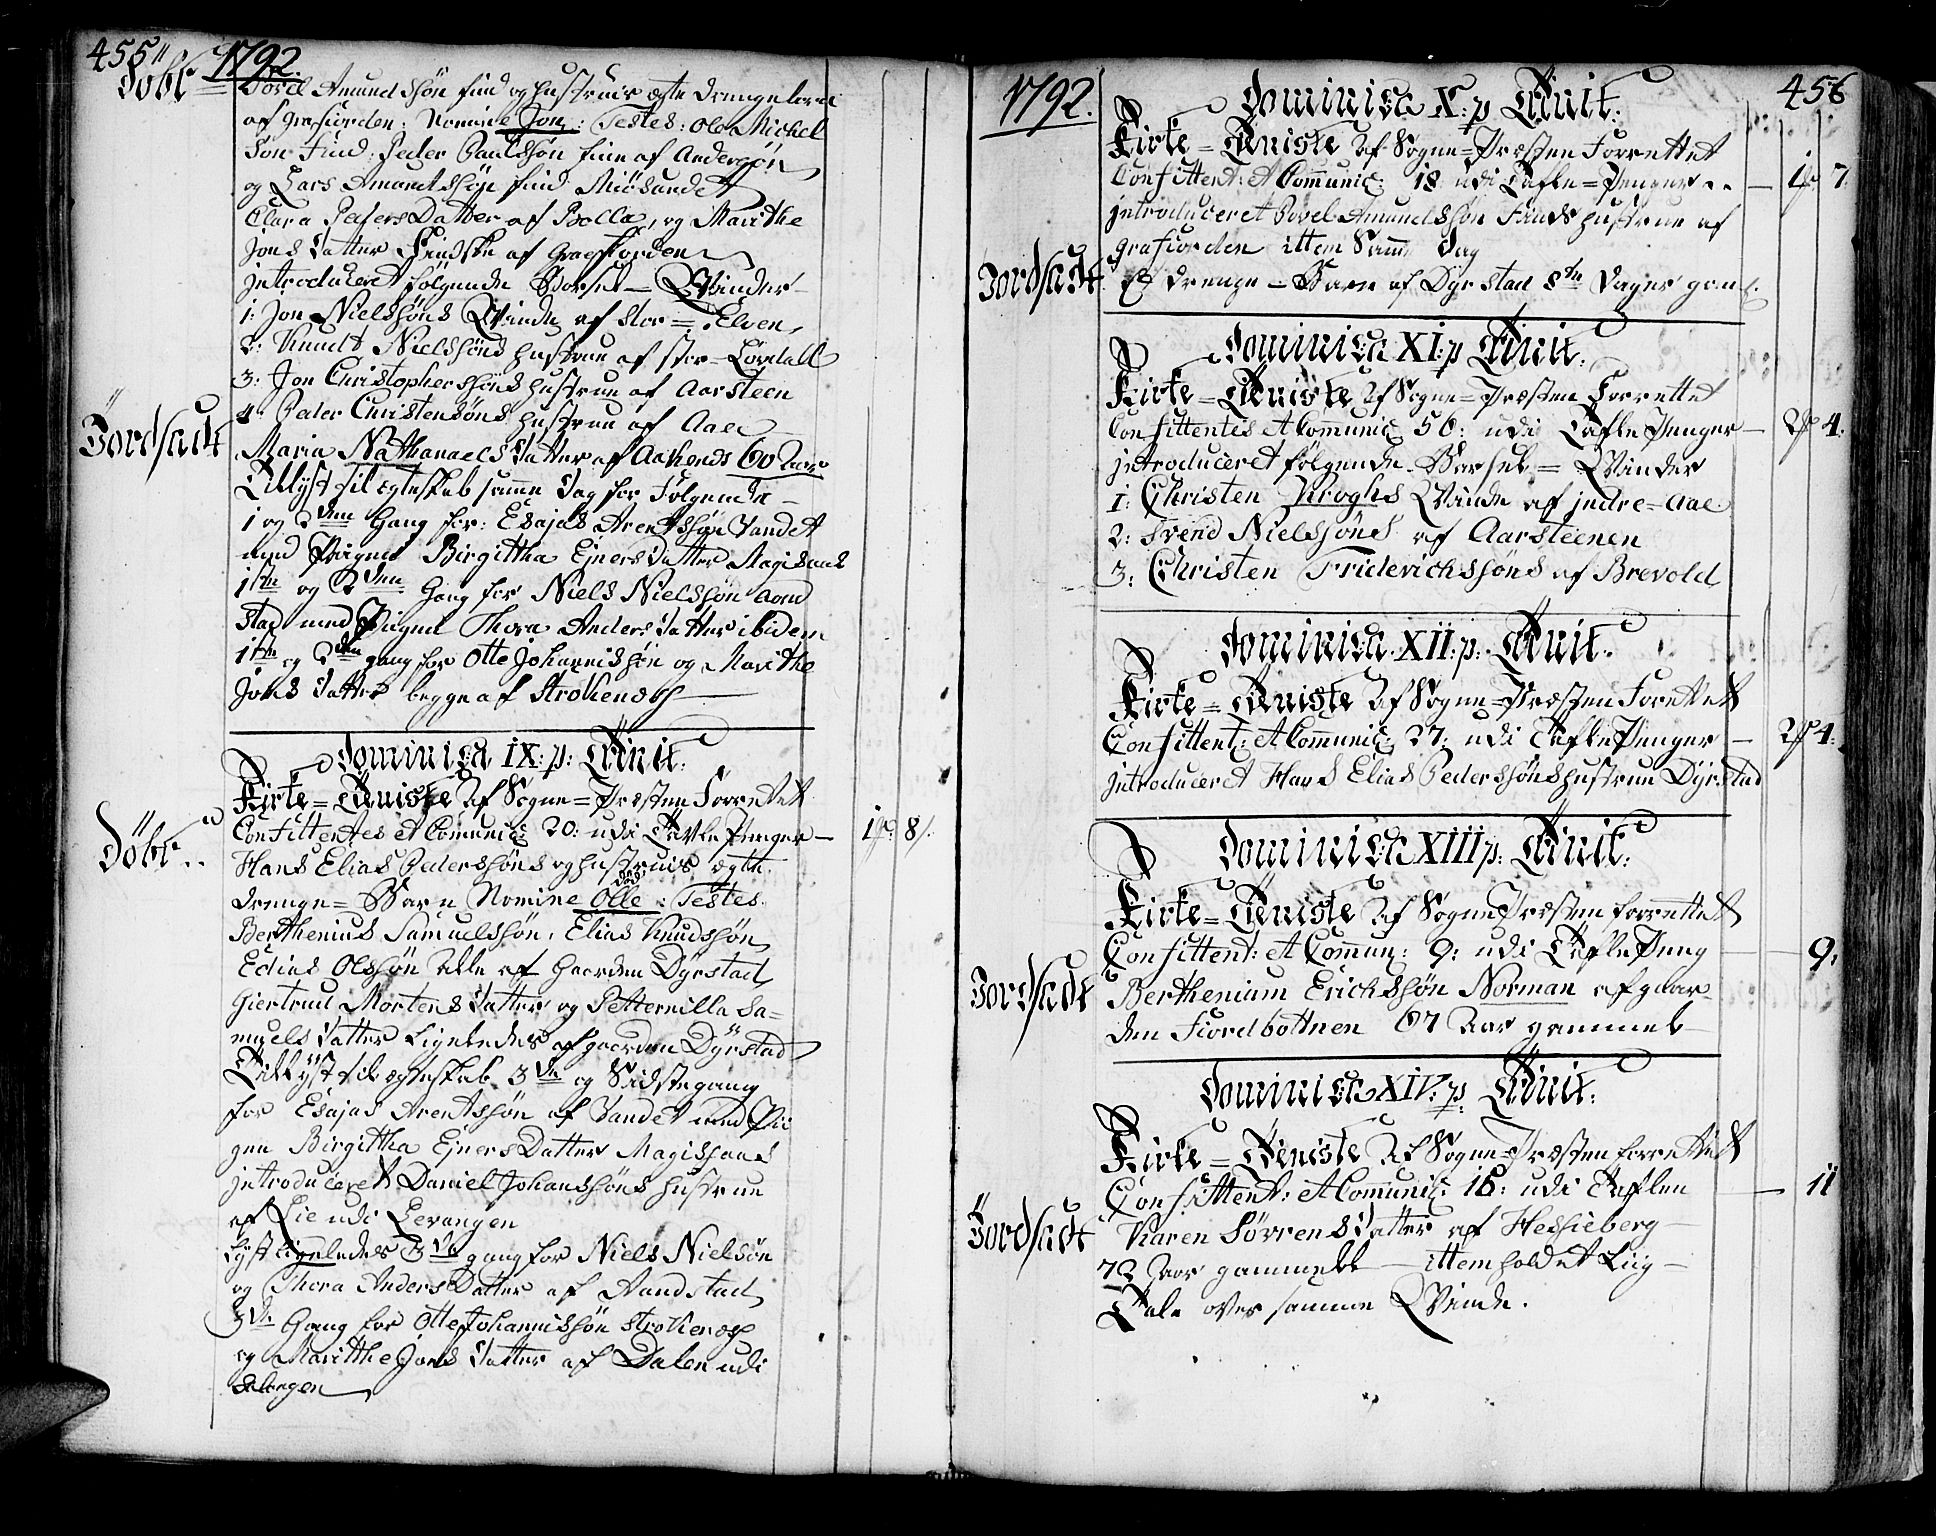 455
1792
Døbt
Povel Amundssøn find og hustrues ægte drengebarn
af grafiorden: Nomine Jon: Testes: Ole Michel
søn Find: Peder Paulssøn finn af Andersøn
og Lars Amundssøn find: Miøsundet
Clara PedersDatter af Bolla, og Marithe
Jons datter Findske af Gragfiorden
jntroduceret følgende Barsel-Qvinder
1: Jon Nielssøns Qvinde af Stor-Elven
2: Knudt Nielssøns hustrue af stor-Løvdall
3: Jon Christopherssøns hustrue af Aarsteen
4: Peder Christensøns hustrue af Aae
Jordfædt
Maria Nathanaels datter af Aakends 60 Aar
Tillyst til egteskab samme dag for Følgende
1 og 2den Gang for: Esajas Arentssøn Vandet
med Pigen Birgittha Ejners datter Magisand
1ste og 2den Gang for Niels Nielssøn aand
stad med Pigen Thora Anders datter ibidem
1ste og 2den gang for Otte Johannissøn og Marithe
Jons datter begge af Strokenæs
Dominica IX: p: Trinit:
Kirke=Tieniste af Sogne=Præsten Forrettet
Confitentes et Comunic: 20: udi Tavle Penger — 1 8
Døbt
Hans Elias Pederssøns og hustrues ægte
død
drenge=Barn Nomine Olle: Testes.
Berthenius Samuelssøn, Elias Knudssøn
Edias Olssøn Alle af Gaarden Dyrstad
Giertrud Mortens datter og Petternilla Sa=
muels datter Ligeledes af gaarden Dyrstad
Tillyst til egteskab 3de og Sidste gang
for Esajas Arentssøn af Vandet med Pi
gen Birgittha EjnersDatter Magissand
jntroduceret Daniel Johanssøns hustrue
af Lie udi Levangen
Lyst Ligeledes 3de gang for Niels Nielsøn
og Thora AndersDatter af Aandstad
3de Gang for Otte Johannissøn Strokenæs
og Marithe Jons datter af Dalen udi
Salangen
456
1792.
Dominica X: p Trinit:
Kirke=Tieniste af Sogne=Præsten Forrettet
Confittent: et Communic: 18 udi Tafle=Penger — 1 7
jntroduceret Povel Amundssøn Finds hustrue af
grafiorden ittem Samme dag
Jordfædt
Et drenge-Barn af Dyrstad 8te dager gam:
Dominica XI: p Trinit:
Kirke=Tieniste af Sogne=Præsten Forrettet
Confittentes et Comunic 56: udi Tafle Penger — 2 4.
jntroduceret følgende Barsel=Qvinder
1: Christen Kroghs Qvinde af jndre-aae
2: Svend Nielssøns af Aarsteenen
3: Christen Friderichssøns af Brevold
Dominica XII: p: Trinit:
Kirke=Tieniste af Sogne=Præsten Forrettet
Confittent: et Communic: 27: udi Tafle Penger — 2 4.
jntroduceret Hans Elias Pederssøns hustrue Dyrstad
Dominica XIII p: Trinit:
Kirke=Tieniste af Sogne Præsten forrettet
Confittent: et Commun: 9: udi Tafle Peng — 9.
Jordfædt
Berthenium Erichssøn Norman af gaar
den Fiordbottnen 67 Aar gammel
Dominica XIV: p: Trinit:
Kirke=Tieniste af Sogne=Præsten forrettet
Confittent: et Communic: 16: udi Taflen — 11
Jordfædt
Karen Sørrens datter af Hessieberg
72 Aar gammell — ittem holdet Liig-
Tale over samme Qvinde.